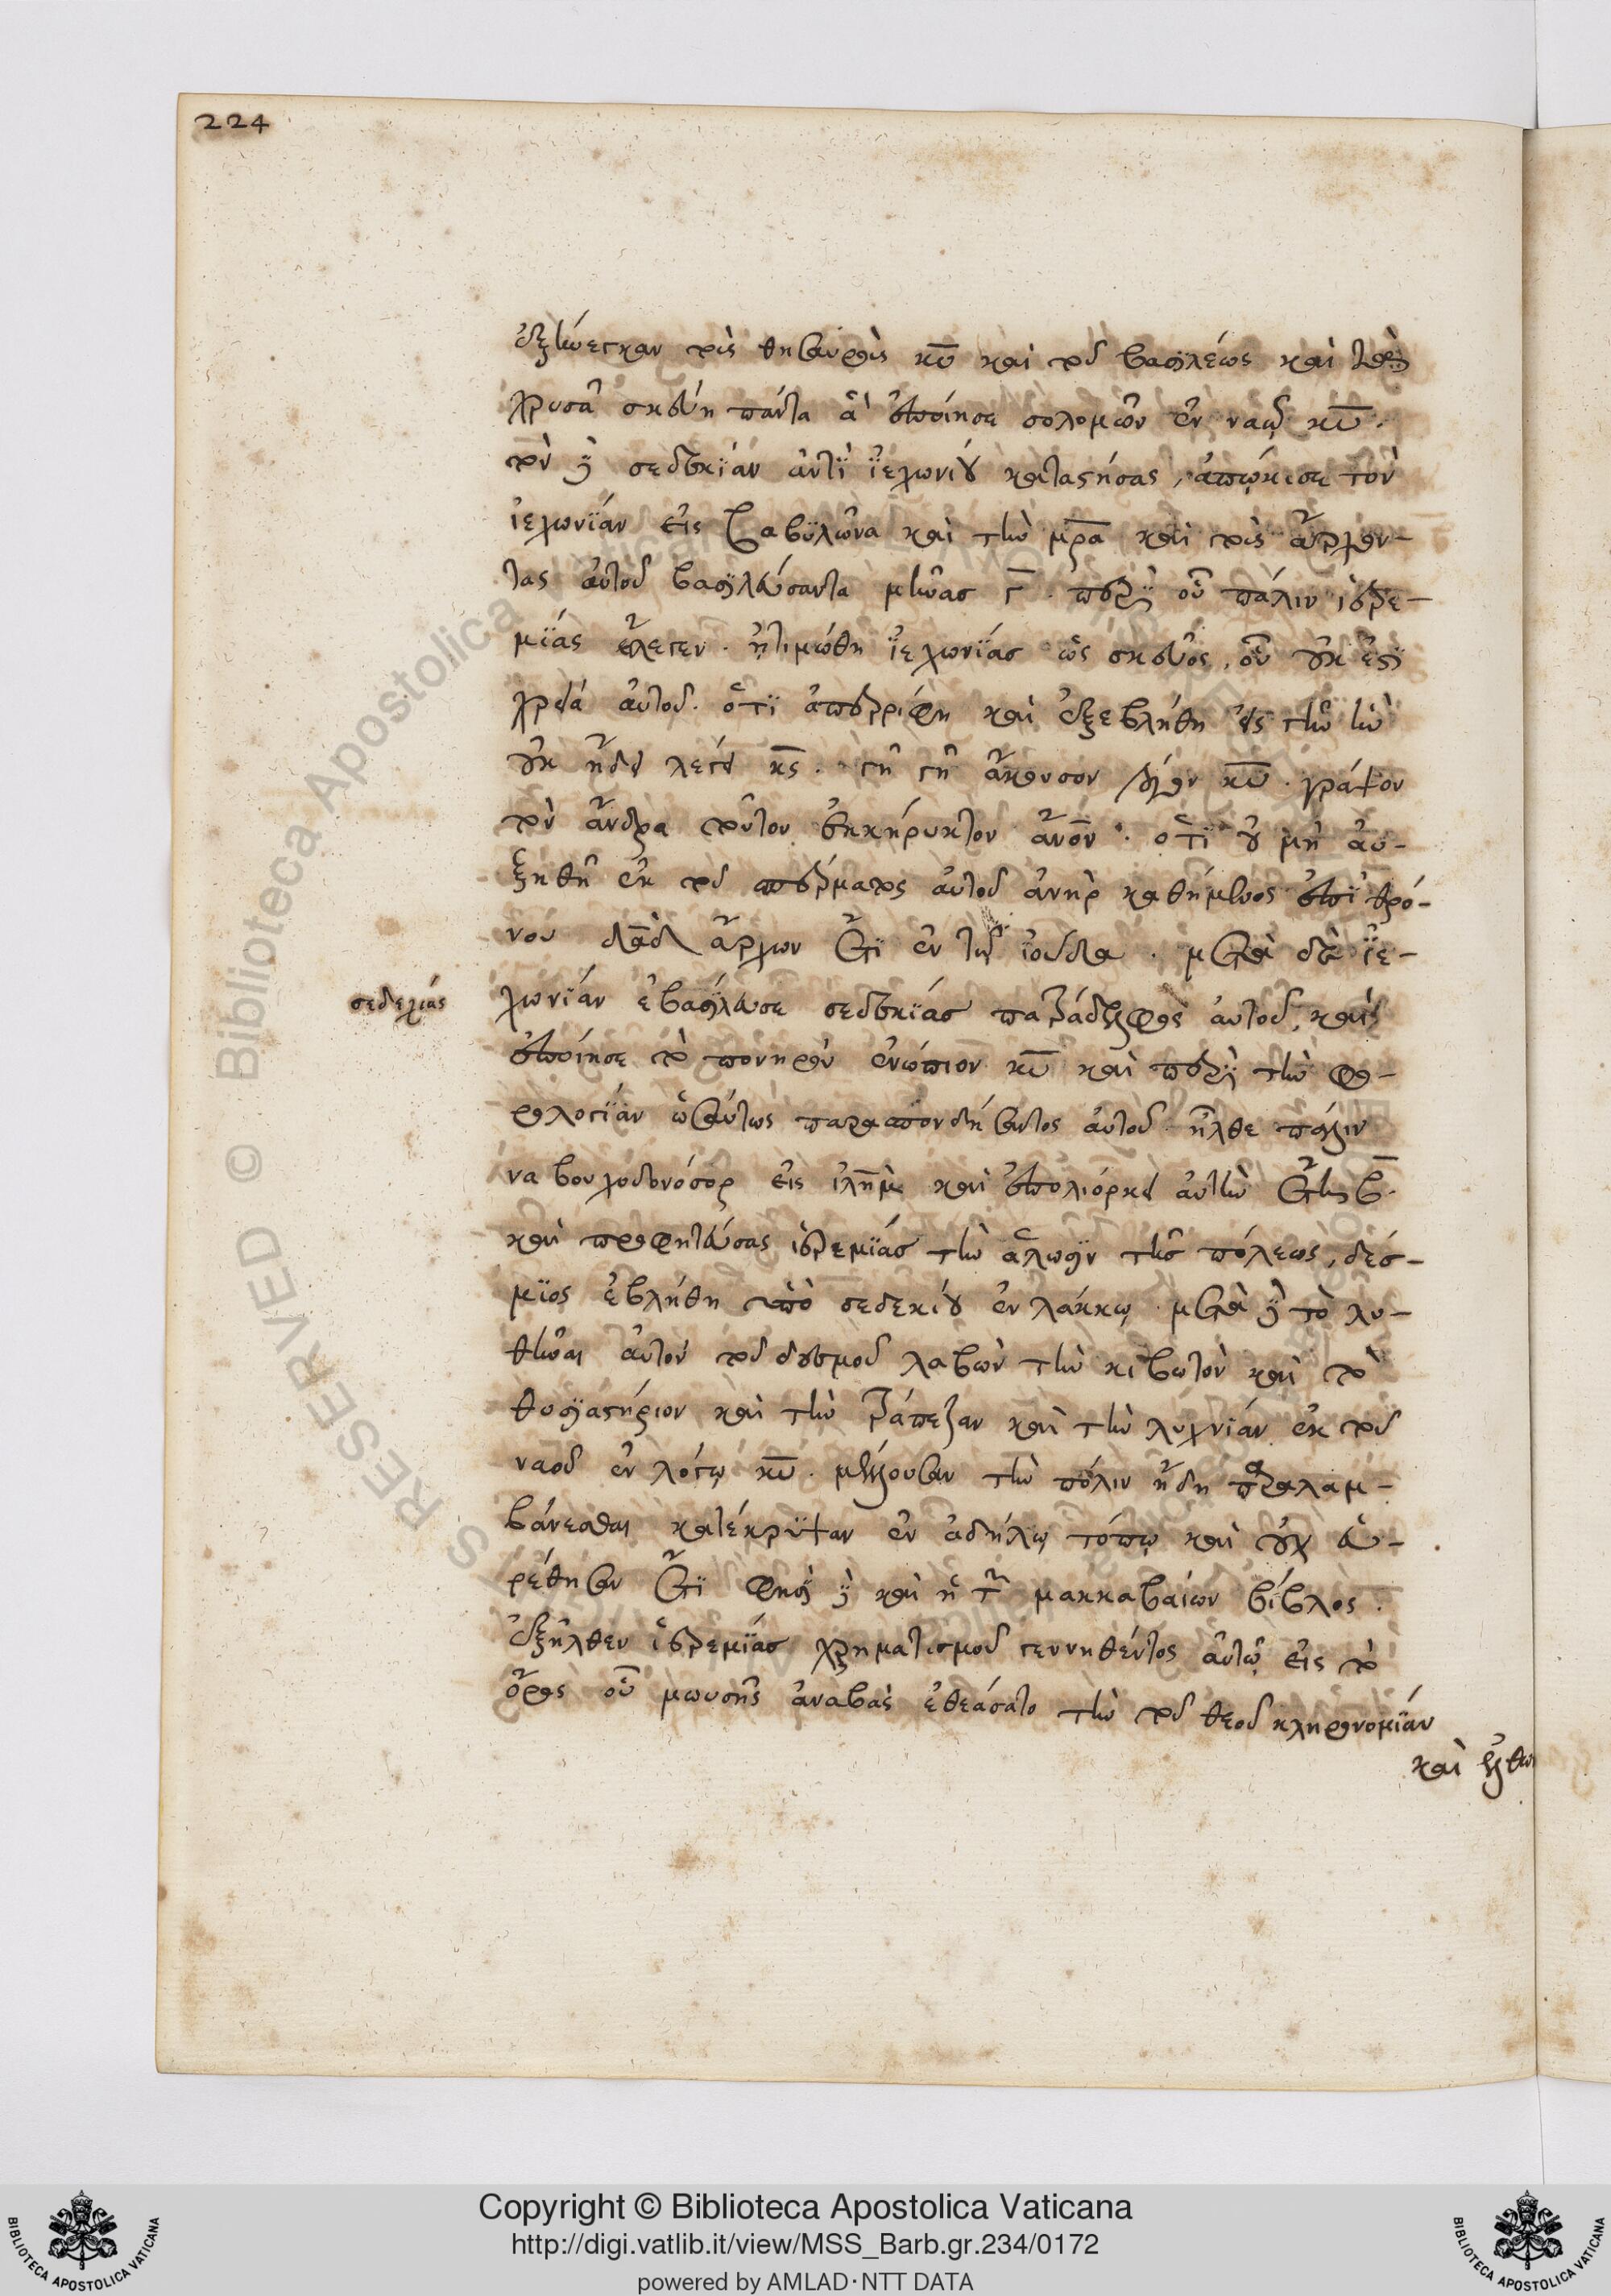 224
ἐξήνεγκαν τοὺς θησαυροὺς κῡ καὶ τοῦ βασιλέως καὶ τὰ
χρυσᾶ σκεύη πάντα ἃ ἐποίησε σολομῶν ἐν ναῷ κῡ.
τὸν δὲ σεδεκϊάν ἀντῒ ϊεχωνίου καταστήσας, ἀπῴκισε τὸν
ἰεχωνϊάν εἰς βαβϋλῶνα καὶ τὴν μρ̄α καὶ τοὺς ἄρχον-
τας αὐτοῦ βασϊλεύσαντα μῆνας γ̄. περὶ οὗ πάλιν ἱερε-
μϊάς ἔλεγεν. ἠτιμώθη ϊεχωνϊάς ὡς σκεῦος, οὗ οὐκ ἔστϊ
χρεία αὐτοῦ. ὅτϊ ἀπερρίφη καὶ ἐξεβλήθη εἰς γῆν ἣν
οὐκ ᾔδει λέγει κ̄ς. γῆ γῆ ἄκουσον λόγον κῡ. γράψον
τὸν ἄνδρα τοῦτον ἐκκήρυκτον ἄνο̄ν. ὅτϊ οὐ μὴ αὐ-
ξηθῇ ἐκ τοῦ σπέρματος αὐτοῦ ἀνὴρ καθήμενος ἐπῒ θρό-
νου δᾱδ ἄρχων ἔτϊ ἐν τῷ ϊούδα. μετὰ δὲ ϊε-
σεδεχίας
χωνϊάν ἐβασίλευσε σεδεκϊάς πατράδελφος αὐτοῦ, καὶ
ἐποίησε τὸ πονηρὸν ἐνώπιον κῡ καὶ περὶ τὴν φο-
ρολογϊάν ὡσαύτως παρασπονδήσαντος αὐτοῦ ἦλθε πάλιν
ναβουχοδονόσορ εἰς ἱλη̄μ καὶ ἐπολιόρκει αὐτὴν ἔτη β̄.
καὶ προφητεύσας ἱερεμϊάς τὴν ἅλωσϊν τῆς πόλεως, δέσ-
μϊος ἐβλήθη ὑπὸ σεδεκίου ἐν λάκκῳ. μετὰ δὲ τὸ λυ-
θῆναι αὐτὸν τοῦ δεσμοῦ λαβὼν τὴν κιβωτὸν καὶ τὸ
θυσϊαστήριον καὶ τὴν τράπεζαν καὶ τὴν λυχνϊάν ἐκ τοῦ
ναοῦ ἐν λόγῳ κῡ. μέλλουσαν τὴν πόλιν ἤδη παραλαμ-
βάνεσθαι κατέκρϋψαν ἐν ἀδήλῳ τόπῳ καὶ οὐχ εὑ-
ρέθησαν ἔτϊ φησῒ δὲ καὶ ἡ τῶν μακκαβαίων βίβλος.
ἐξῆλθεν ἱερεμϊάς χρηματισμοῦ γεννηθέντος αὐτῷ εἰς τὸ
ὄρος οὗ μωυσῆς ἀναβὰς ἐθεάσατο τὴν τοῦ θεοῦ κληρονομϊάν
καὶ ἐλθὼν
Copyright © Biblioteca Apostolica Vaticana
http://digi.vatlib.it/view/MSS_Barb.gr.234/0172
powered by AMLAD·NTT DATA